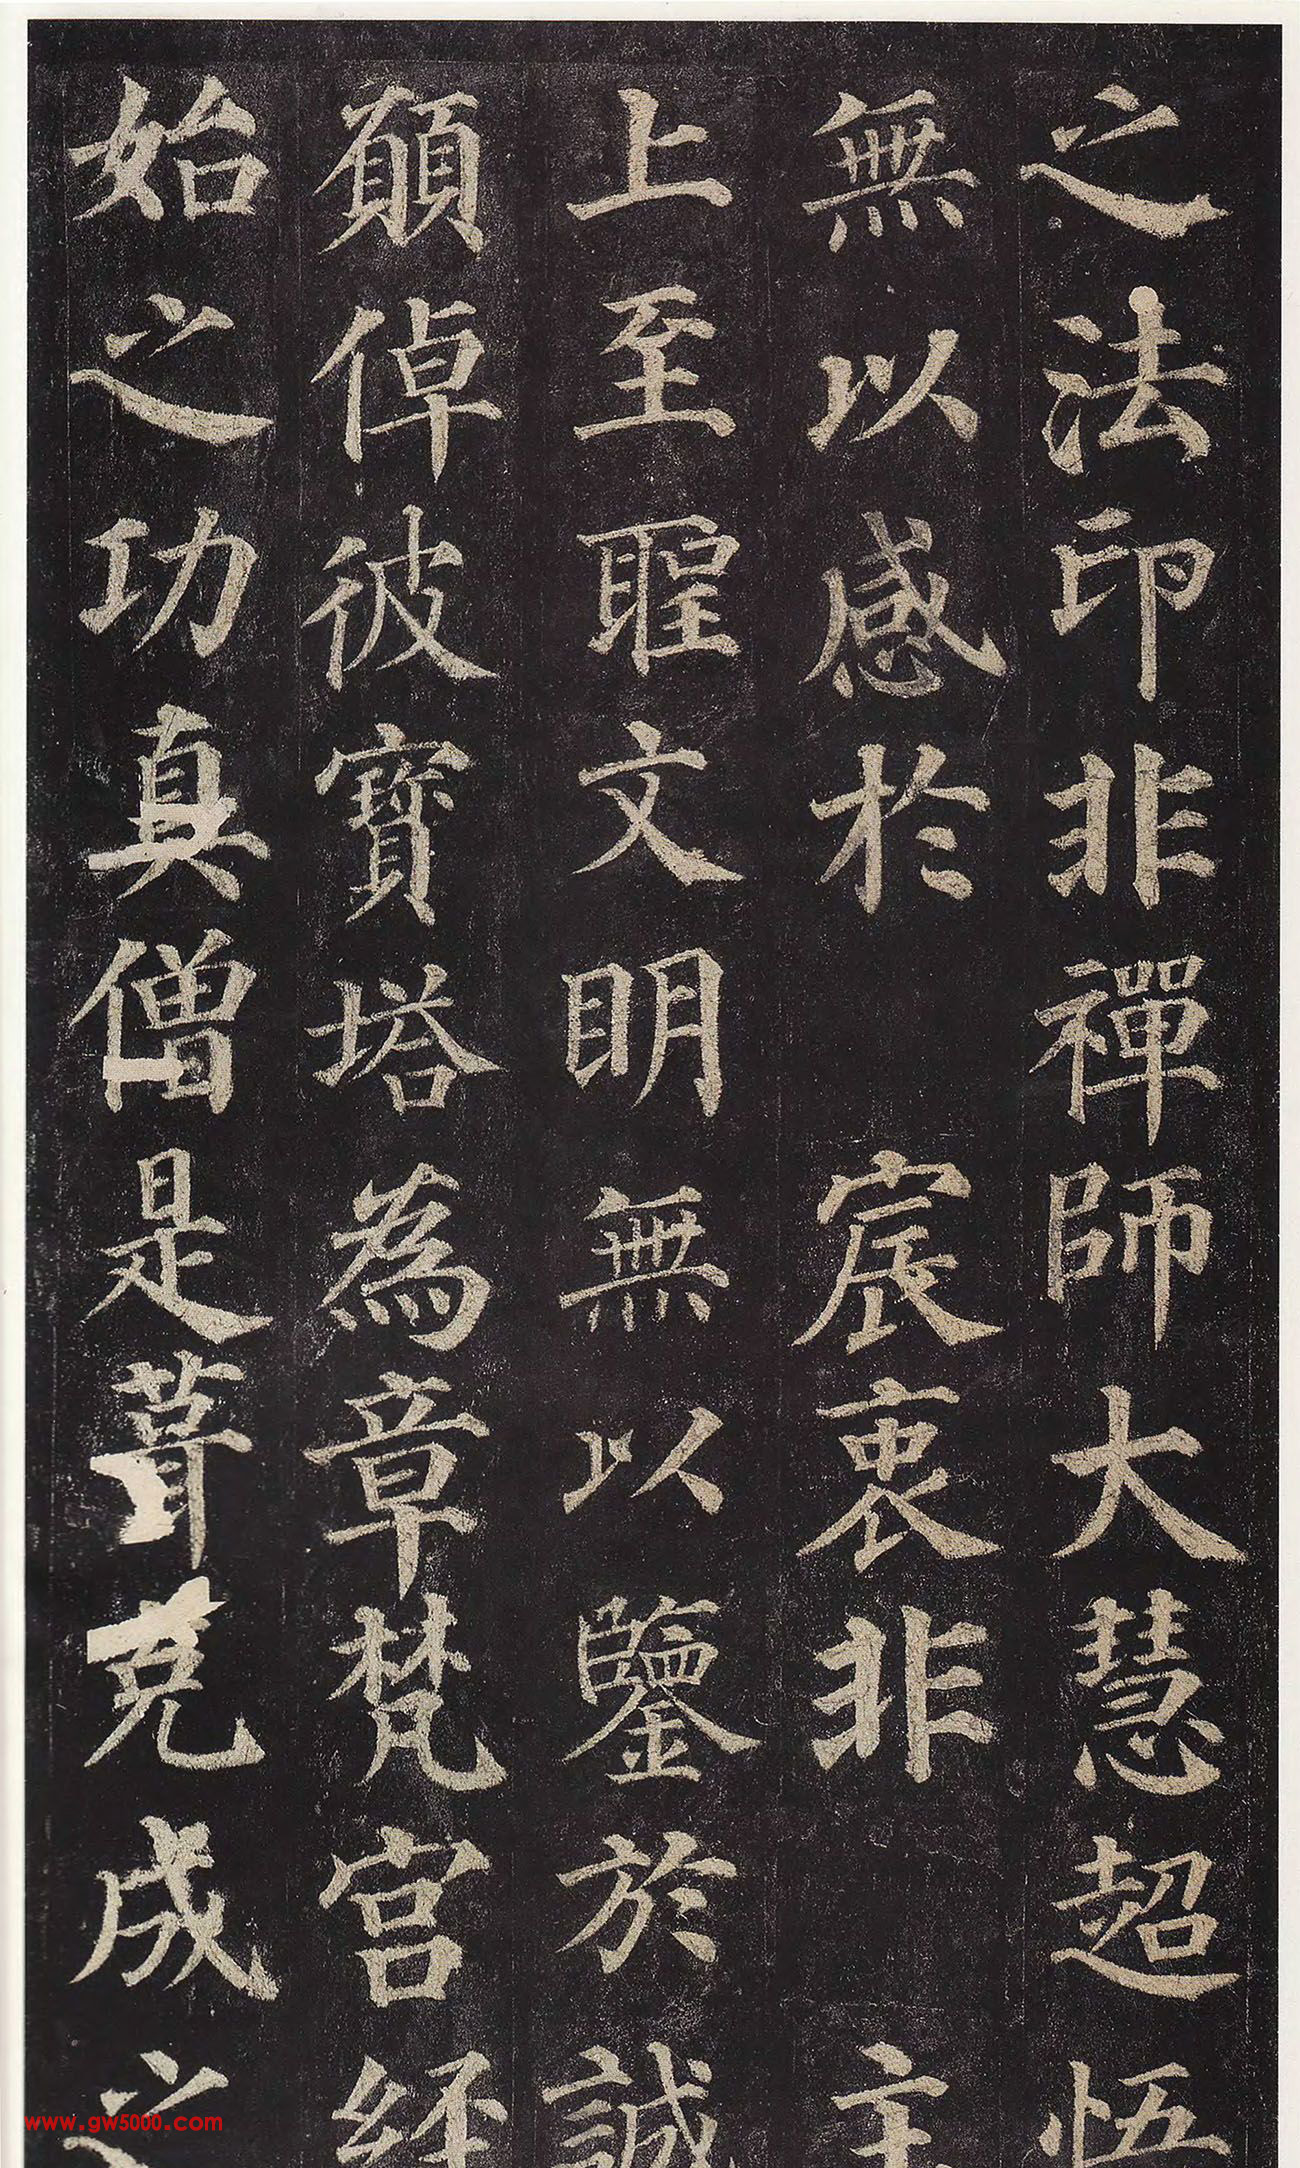 之法印非禪師大慧超悟
無以感於宸衷非主
上至聖文明無以鑒於誠
願倬彼寶塔為章梵宮經
始之功真僧是葺克成之
www.gw5000.com